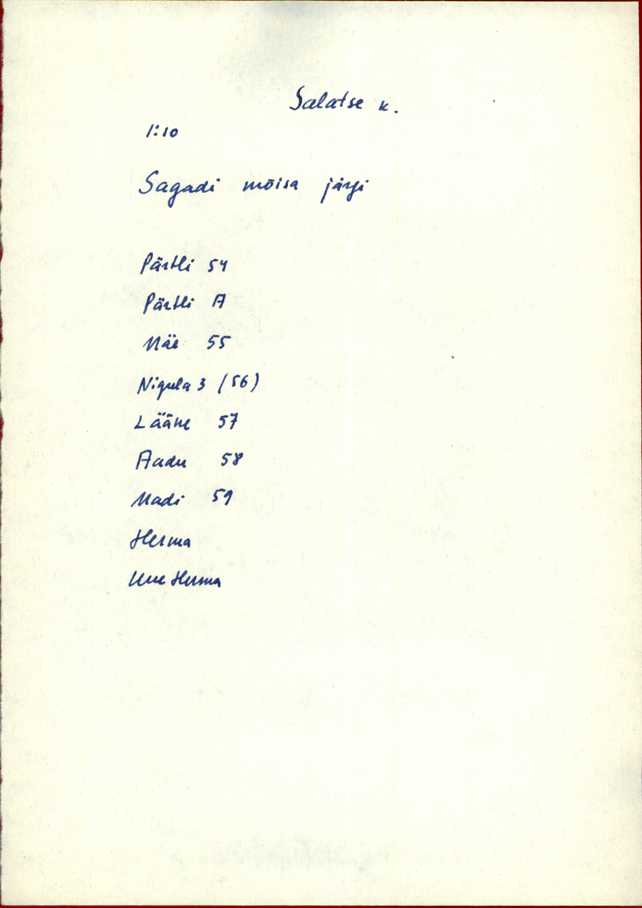 Salatse k.
1:10
Sagadi mõisa järgi
Pärtli 54
Pärtli A
Mäe 55
Nigula 3 (56)
Lääne 57
Aadu 58
Madi 59
Herma
Uue Herma